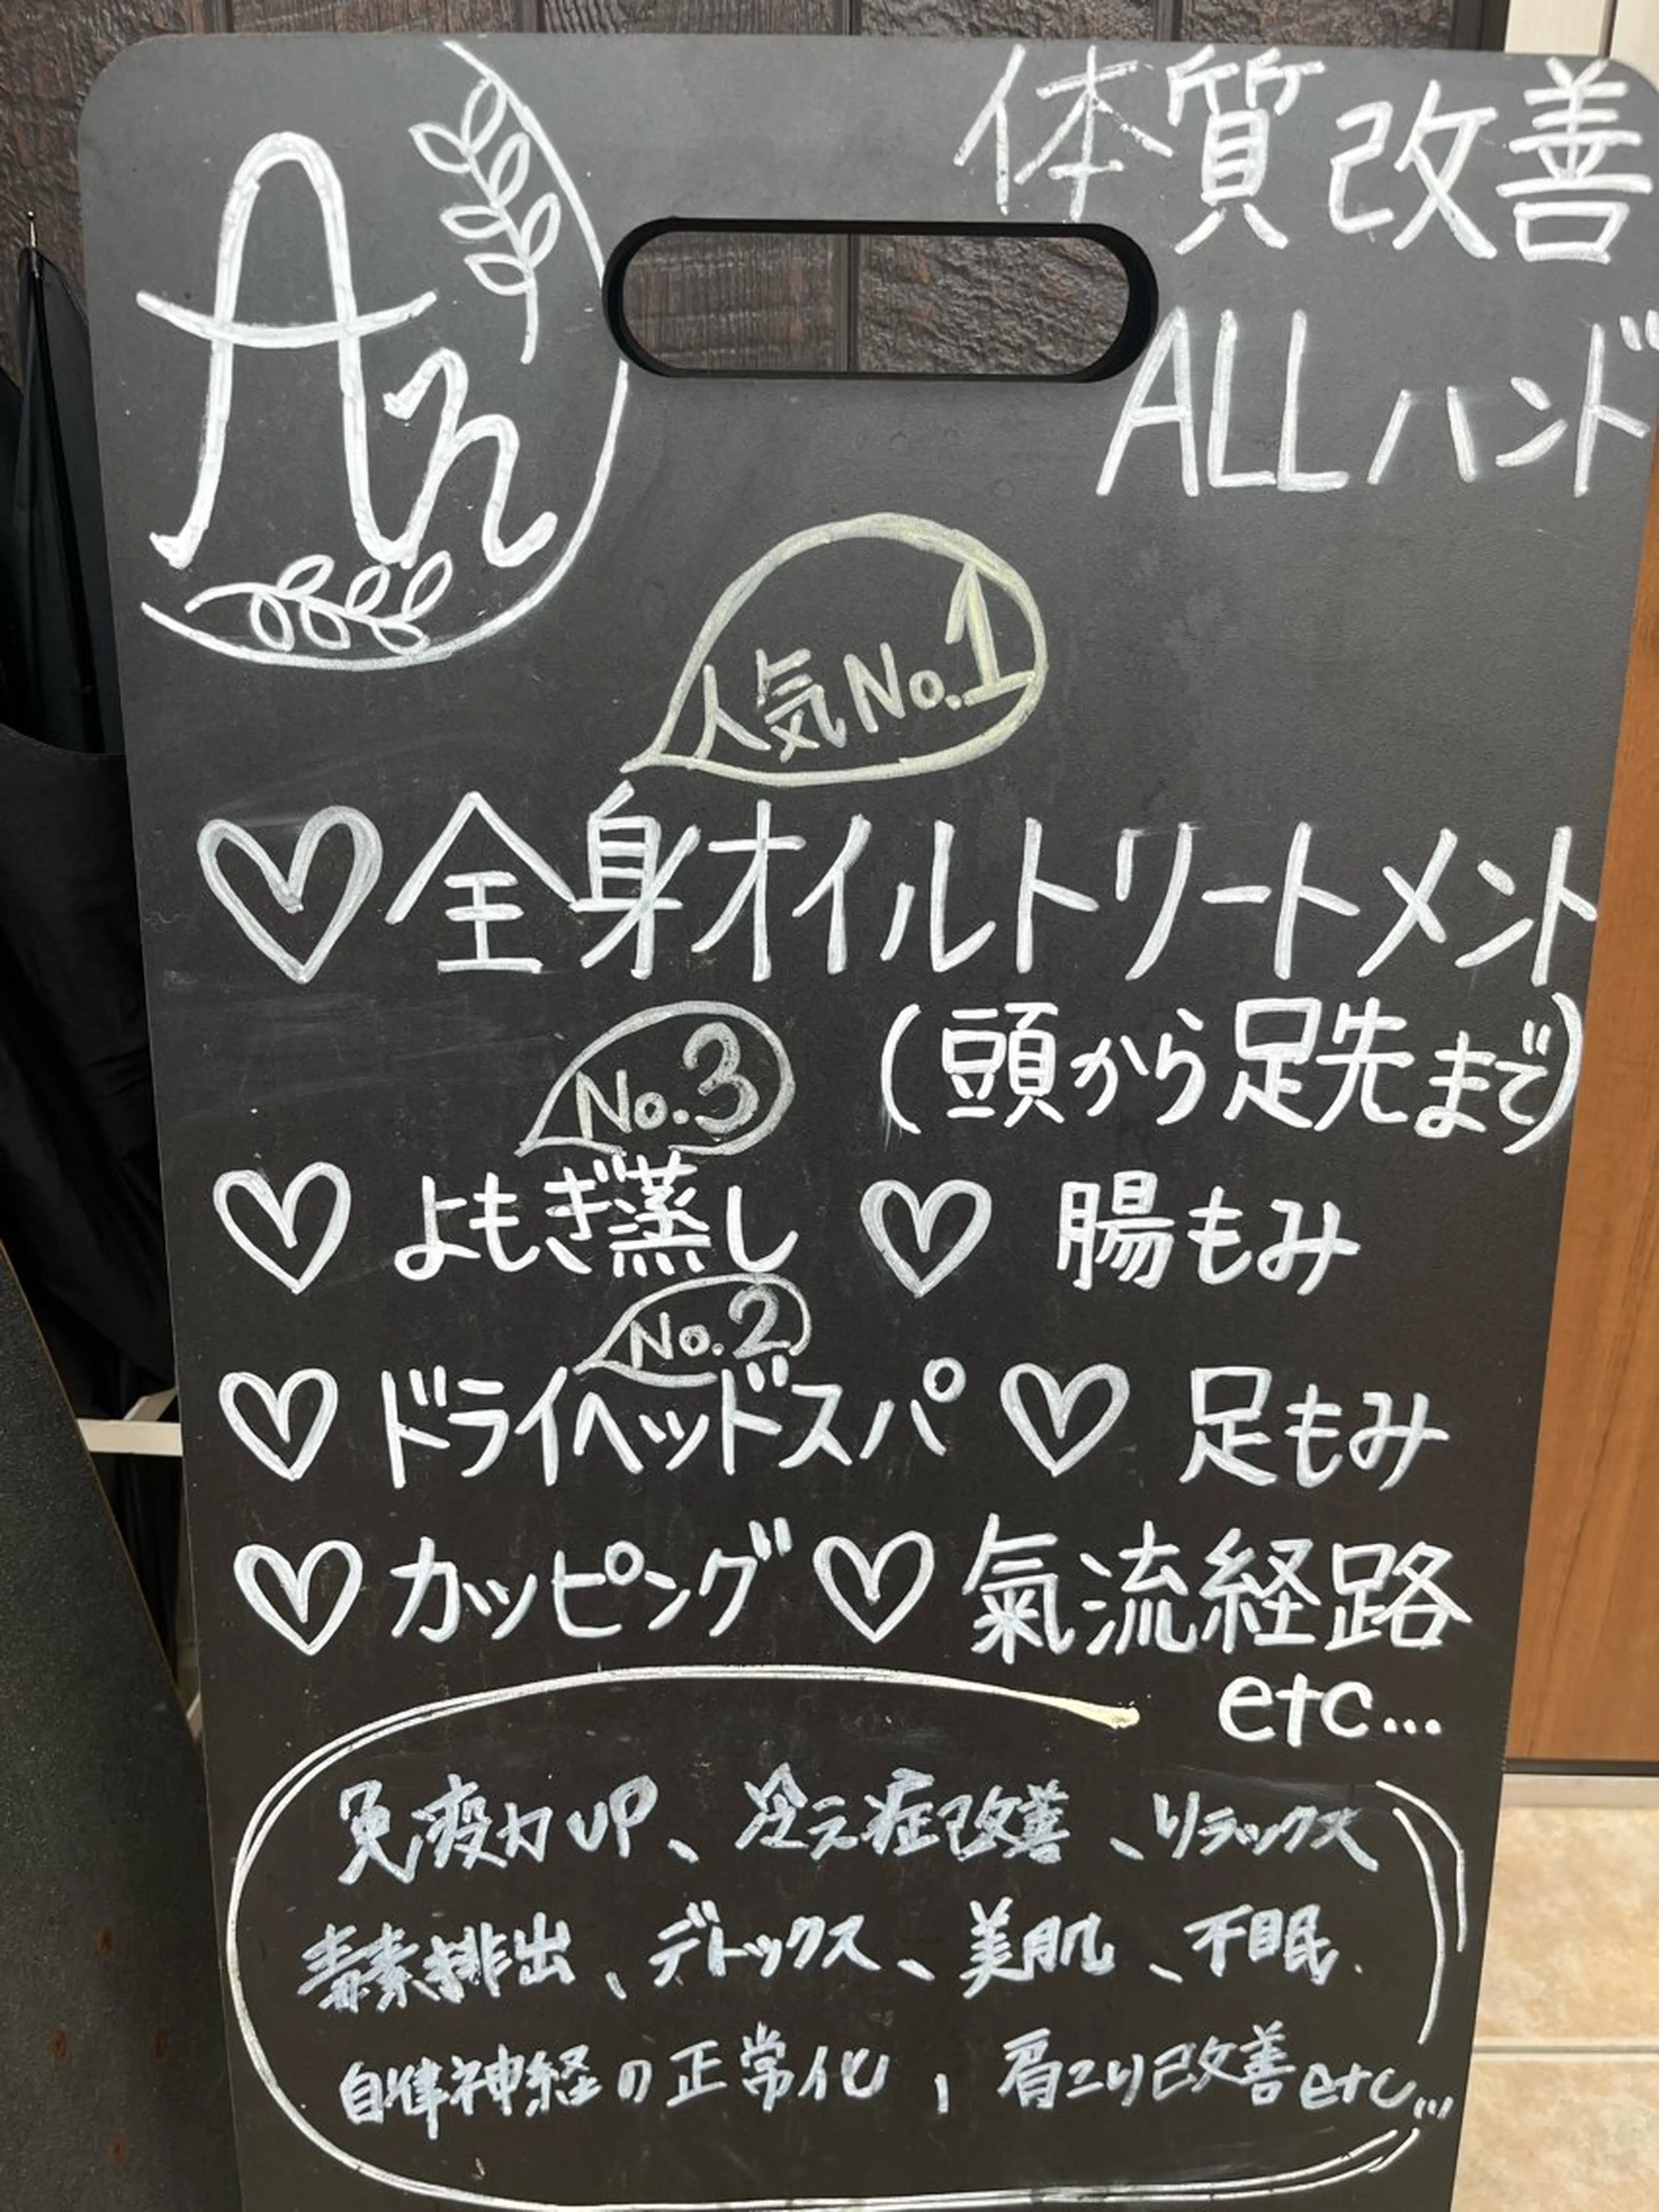 An
体質改善
ALLハンド
人気No.1
♡全身オイルトリートメント
(頭から足先まで)
No.3
♡よもぎ蒸し ♡腸もみ
No.2
♡ドライヘッドスパ ♡足もみ
♡カッピング ♡氣流経路
etc...
免疫力UP、冷え症改善、リラックス
毒素排出、デトックス、美肌、不眠
自律神経の正常化、肩こり改善etc...